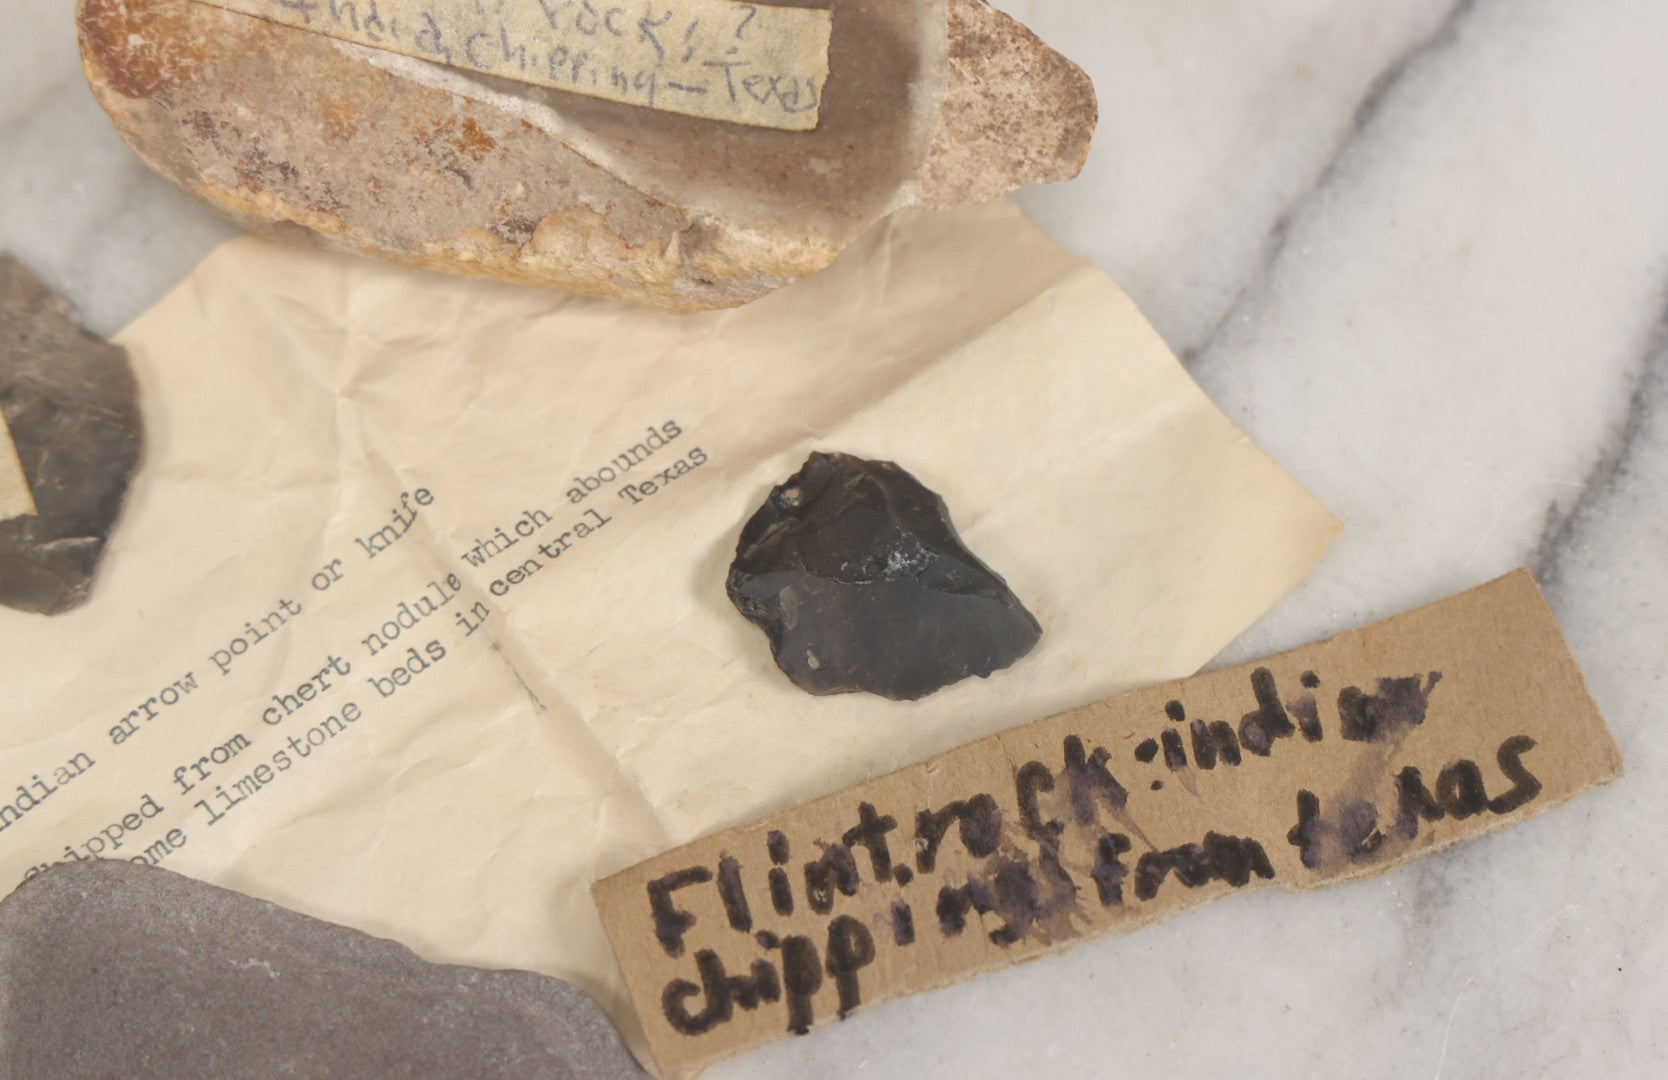 rock, ?
Indian chipping — Texas
ndian arrow point or knife
Chipped from chert nodule which abounds
ome limestone beds in central Texas
Flint.rock.indian
chipping from texas